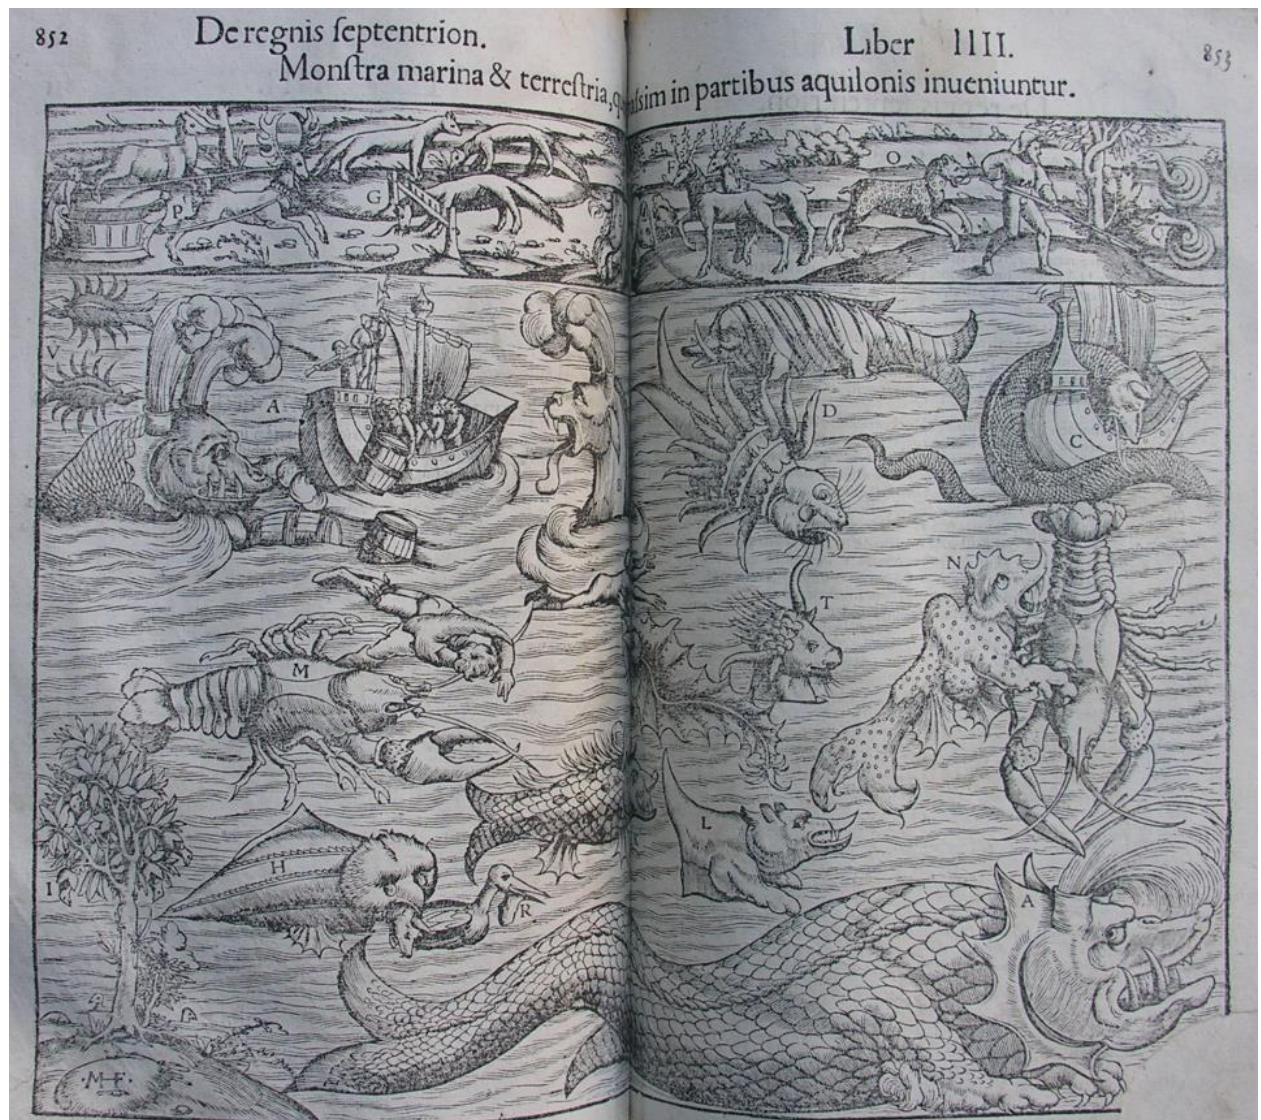 852
De regnis ſeptentrion.
Liber IIII.
853
Monſtra marina & terreſtria, in partibus aquilonis inueniuntur.
P
G
O
V
A
D
C
B
T
N
M
L
H
I
R
A
MHF